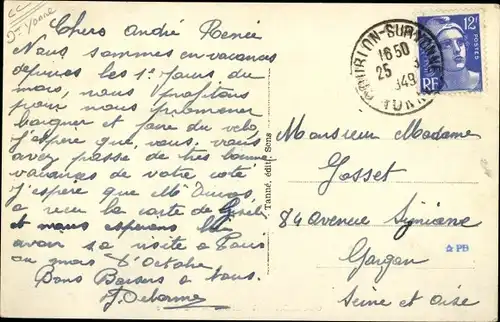 Dt Yonne
Chers André Renée
Nous sommes en vacances
depuis les 1er jours du
mois, nous profitons
pour nous promener
baigner et faire du velo
J'espère que, vous, vous
avez passé de très bonne
vacances de votre coté
J'espère que Me
a reçu la carte de Giseli
et nous esperons
avoir sa visite a Paris
au mois d'Octobre
Bons Baisers a tous.
J. Delanne
Tanné, édit. Sens
COURLON-SUR-YONNE
16 50
25
1949
YONNE
12F
POSTES
RF
Monsieur Madame
Josset
84 avenue
Gargan
Seine et Oise
PB